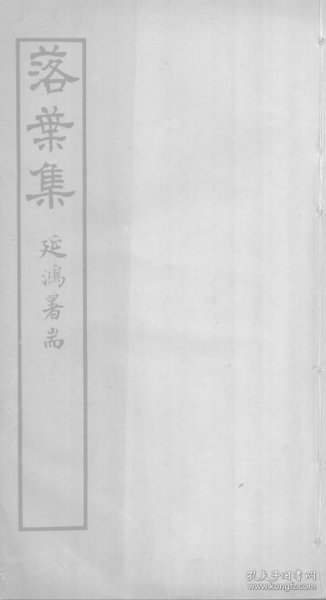 落葉集
延鴻署耑
孔夫子旧书网